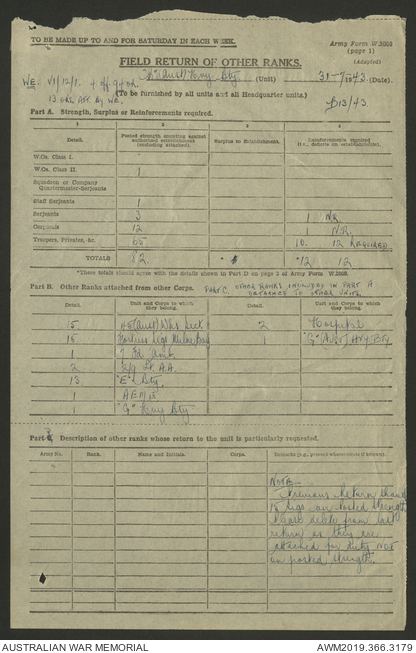 TO BE MADE UP TO AND FOR SATURDAY IN EACH WEEK.
Army Form W.3008
(page 1)
(Adapted)
FIELD RETURN OF OTHER RANKS.
(Aust) Hvy Bty (Unit) 31-7-1943. (Date).
WE: VI/12/1.
(To be furnished by all units and all Headquarter units.)
B13/43.
Part A. Strength, Surplus or Reinforcements required.
1 2 3 4
Detail. Posted strength counting against authorised establishment (excluding attached). Surplus to Establishment. Reinforcements required (i.e., deficits on establishment).
W.Os. Class I.
W.Os. Class II. 1
Squadron or Company Quartermaster-Serjeants
Staff Serjeants 1
Serjeants 3 1 N.R.
Corporals 12 1 N.R.
Troopers, Privates, &c. 65 10. 12 REQUIRED
TOTALS 82. * *12 12
*These totals should agree with the details shown in Part D on page 2 of Army Form W.3008.
Part B. Other Ranks attached from other Corps.
PART C. OTHER RANKS INCLUDED IN PART A DETACHED TO OTHER UNITS.
Detail. Unit and Corps to which they belong. Detail. Unit and Corps to which they belong.
15 (Aust) 2 Hospital
15 Sigs Milne Bay 1 "G" (Aust) Hvy Bty
1 7 Fd Amb.
2 Lt. A.A.
13 "E" Bty.
1
1 "G" Hvy Bty
Part Description of other ranks whose return to the unit is particularly requested.
Army No. Rank. Name and Initials. Corps. Remarks (e.g., present whereabouts if known).
NOTE
Previous Return shows
15 Sigs on posted strength
Please delete from last
return as they are
attached for duty NOT
on posted strength.
AUSTRALIAN WAR MEMORIAL
AWM2019.366.3179